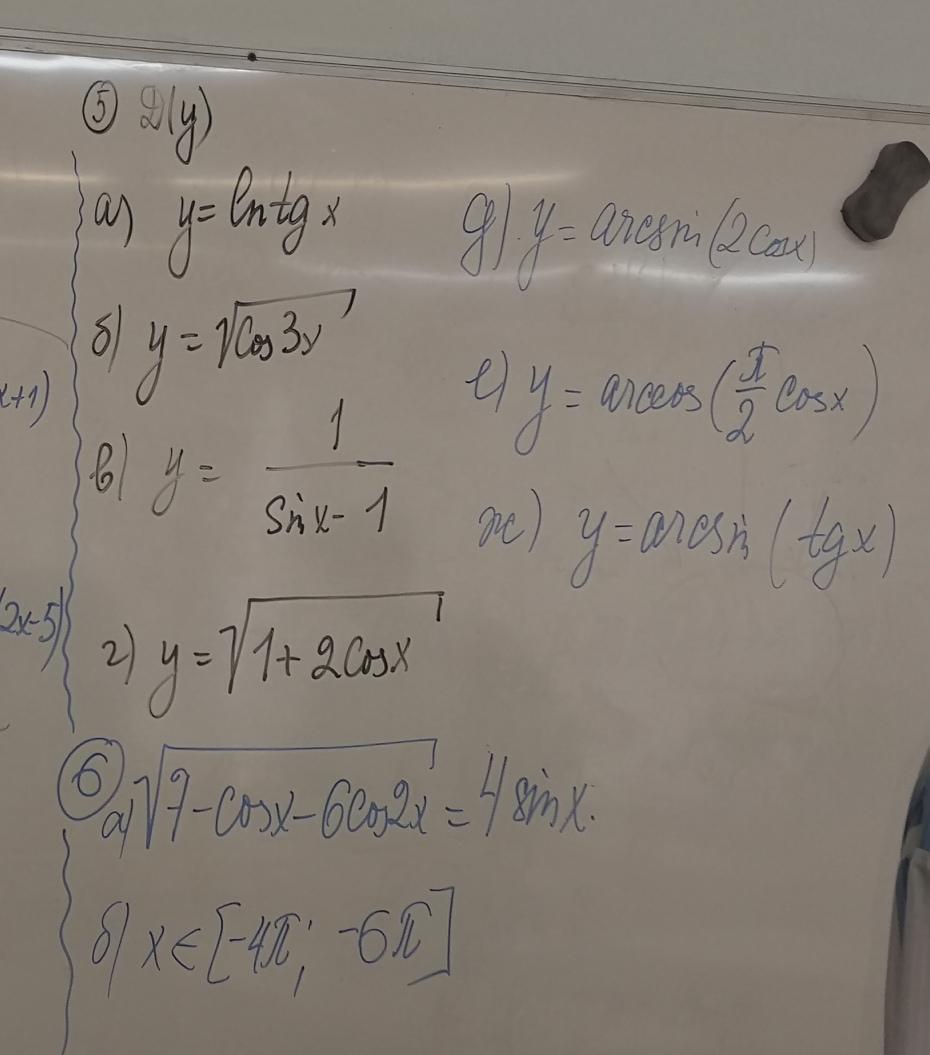 ⑤ D(y)
а) y = ln tg x
б) y = √cos 3x
в) y = 1/(sin x - 1)
г) y = √1 + 2cos x
д) y = arcsin (2cos x)
е) y = arccos (π/2 cos x)
ж) y = arcsin (tg x)
⑥ а) √7 - cos x - 6cos 2x = 4 sin x.
б) x ∈ [-4π; -6π]
x+1)
2x-5)